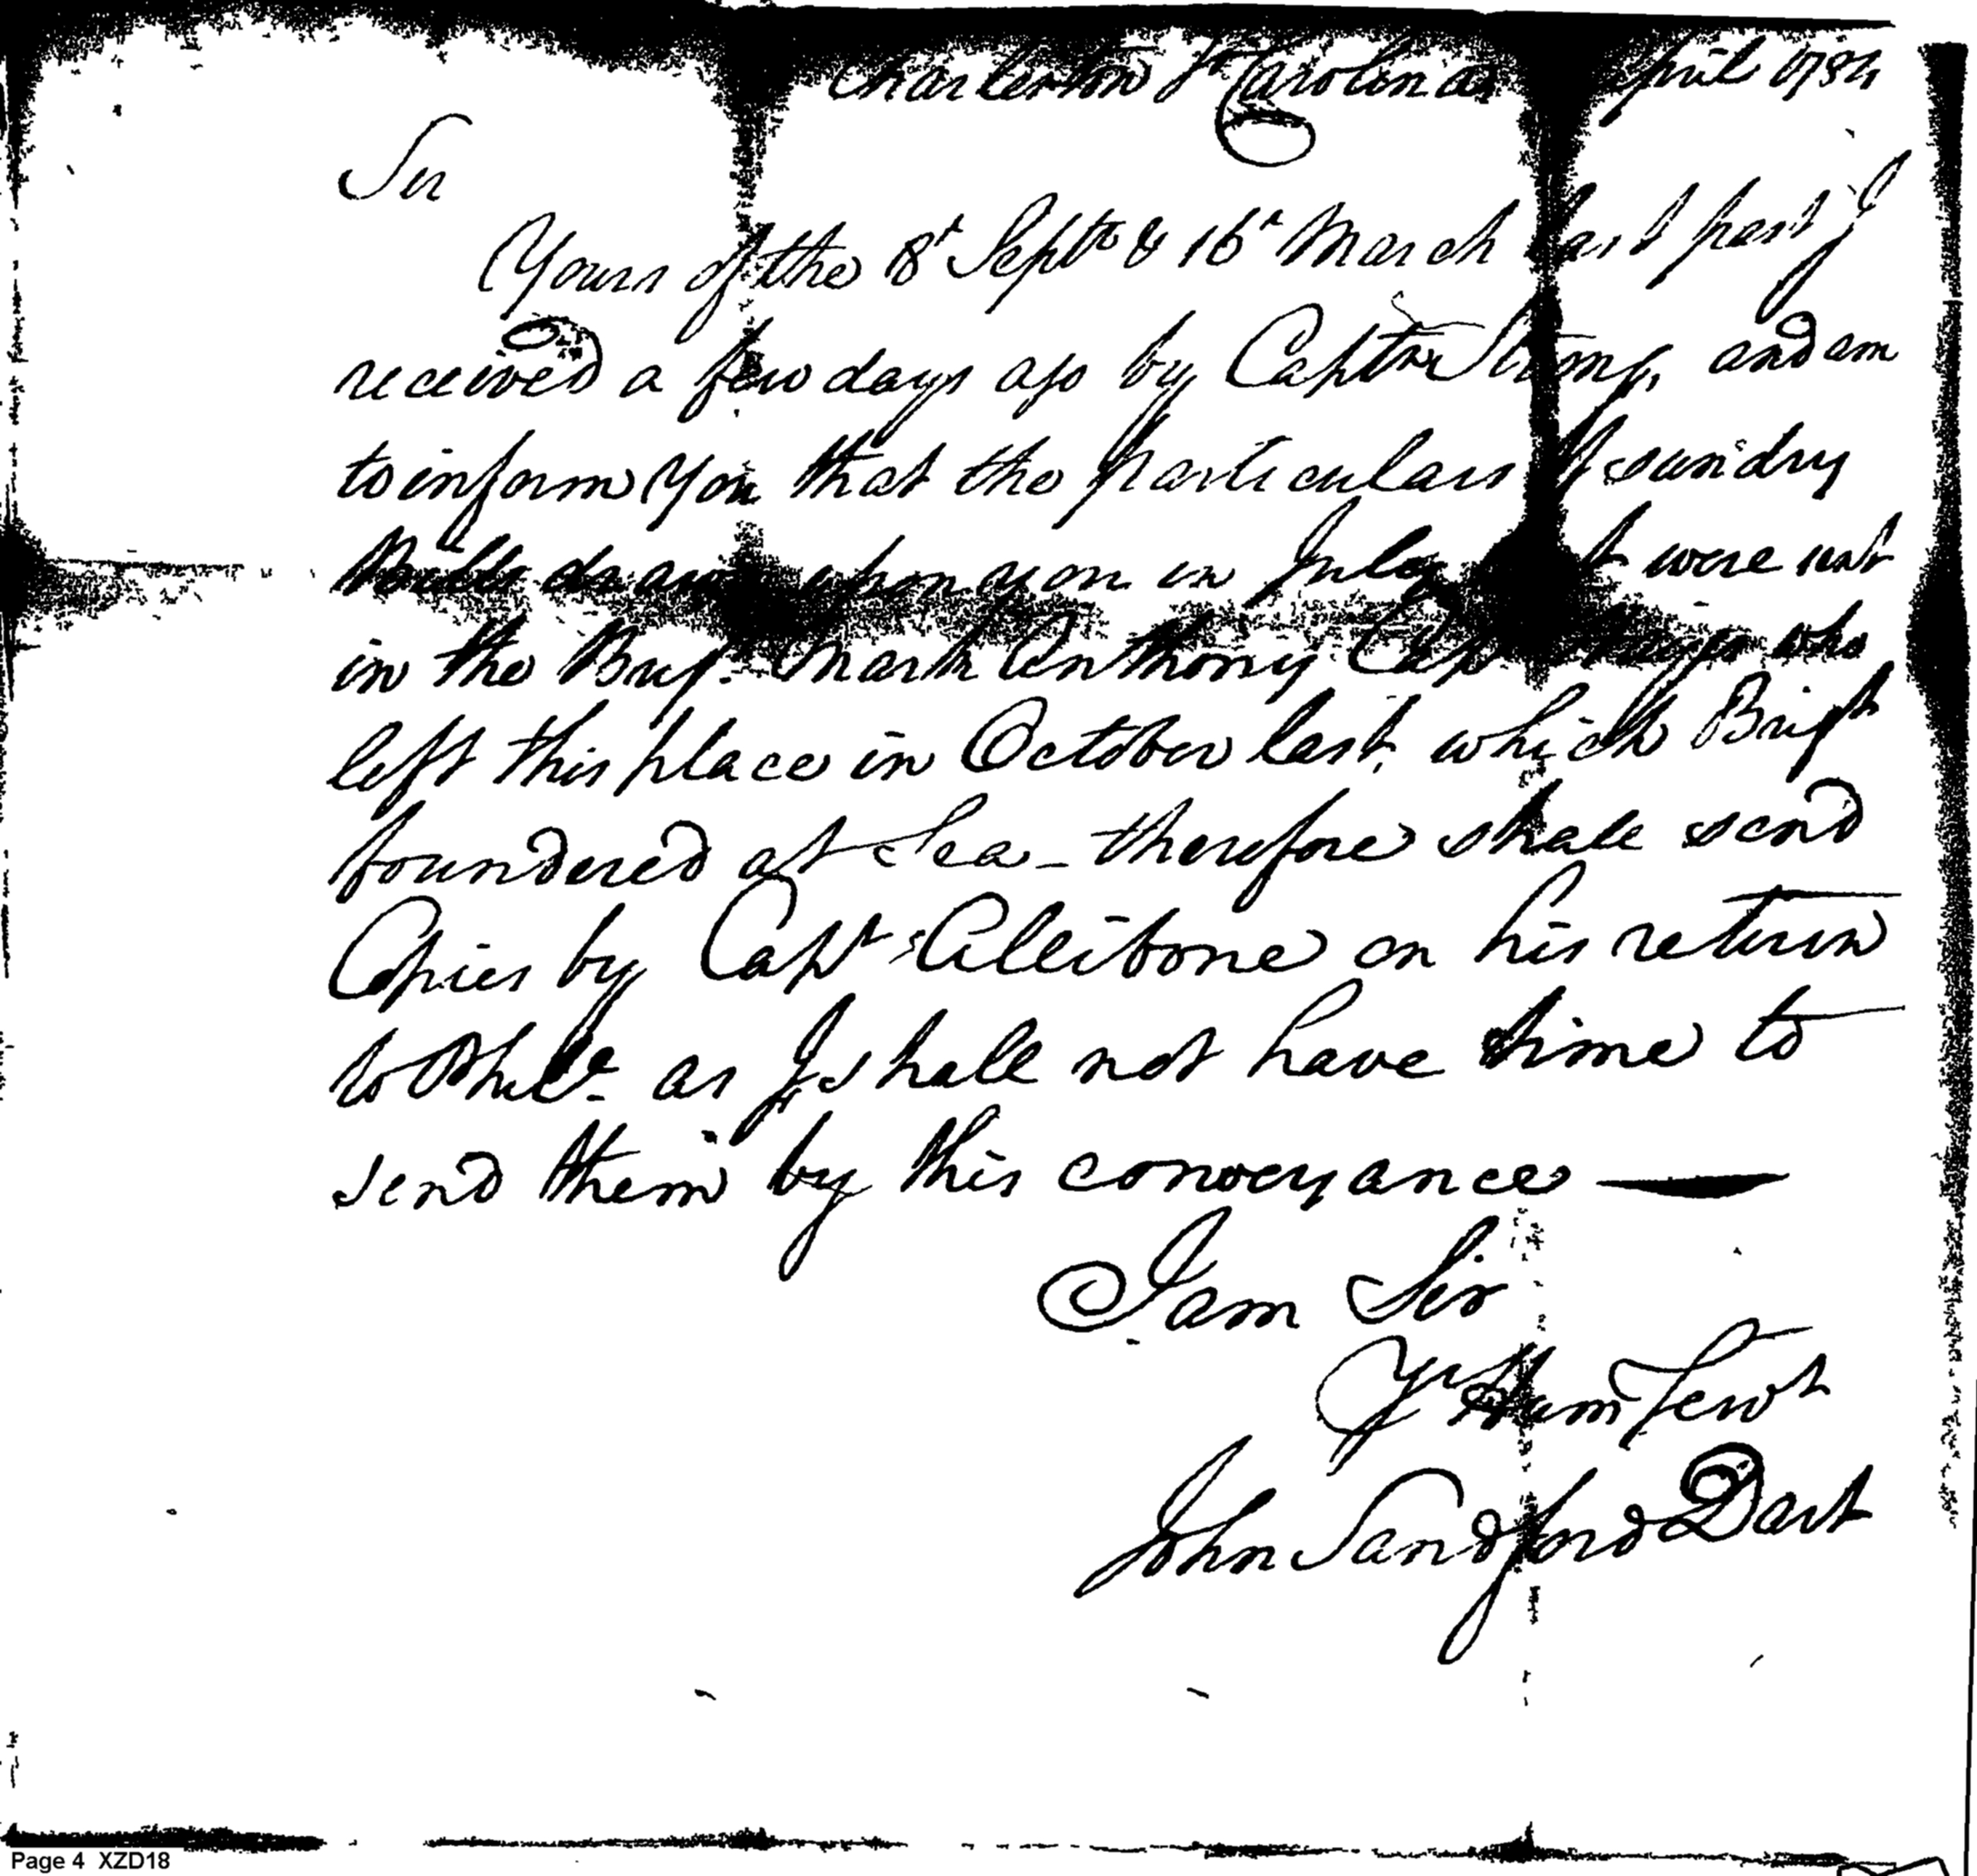 Charleston So Carolina April 1784
Sir
Yours of the 8t Septr & 16t March last past I
received a few days ago by Captn Strong, and am
to inform you that the particulars of sundry
Bills drawn upon you in July last were sent
in the Brig. Mark Anthony Capt who
left this place in October last, which Brigt
foundered at Sea - therefore shall send
Copies by Capt Allibone on his return
to Phila as I shall not have time to
send them by this conveyance —
I am Sir
Yr Hum Servt
John Sandford Dart
Page 4 XZD18